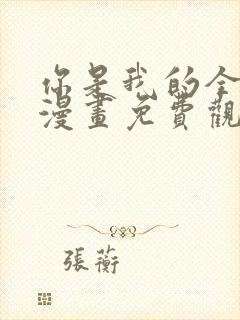 你是我的全
漫畫免費觀
張蘅